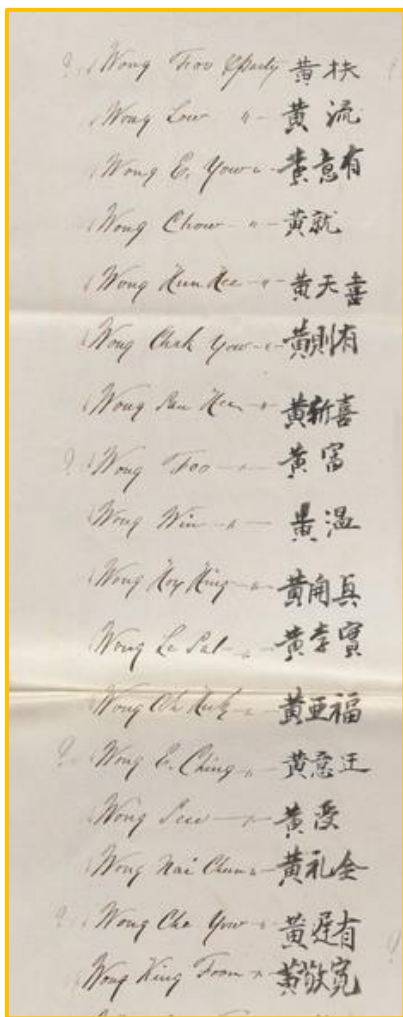 Wong Foo 黃扶
Wong Low " 黃流
Wong E. Yow " 黃意有
Wong Chow " 黃就
Wong Hun Hee " 黃天喜
Wong Chak Yow " 黃則有
Wong San Hee " 黃新喜
? Wong Foo " 黃富
Wong Win " 黃溫
Wong Hoy Hing " 黃開
Wong Le Pal " 黃李寶
Wong Ah 黃亞福
? Wong E. Ching " 黃意
Wong Sew " 黃受
Wong Nai Chun " 黃礼全
? Wong Cha Yow " 黃遲有
Wong King Foon " 黃敬寬